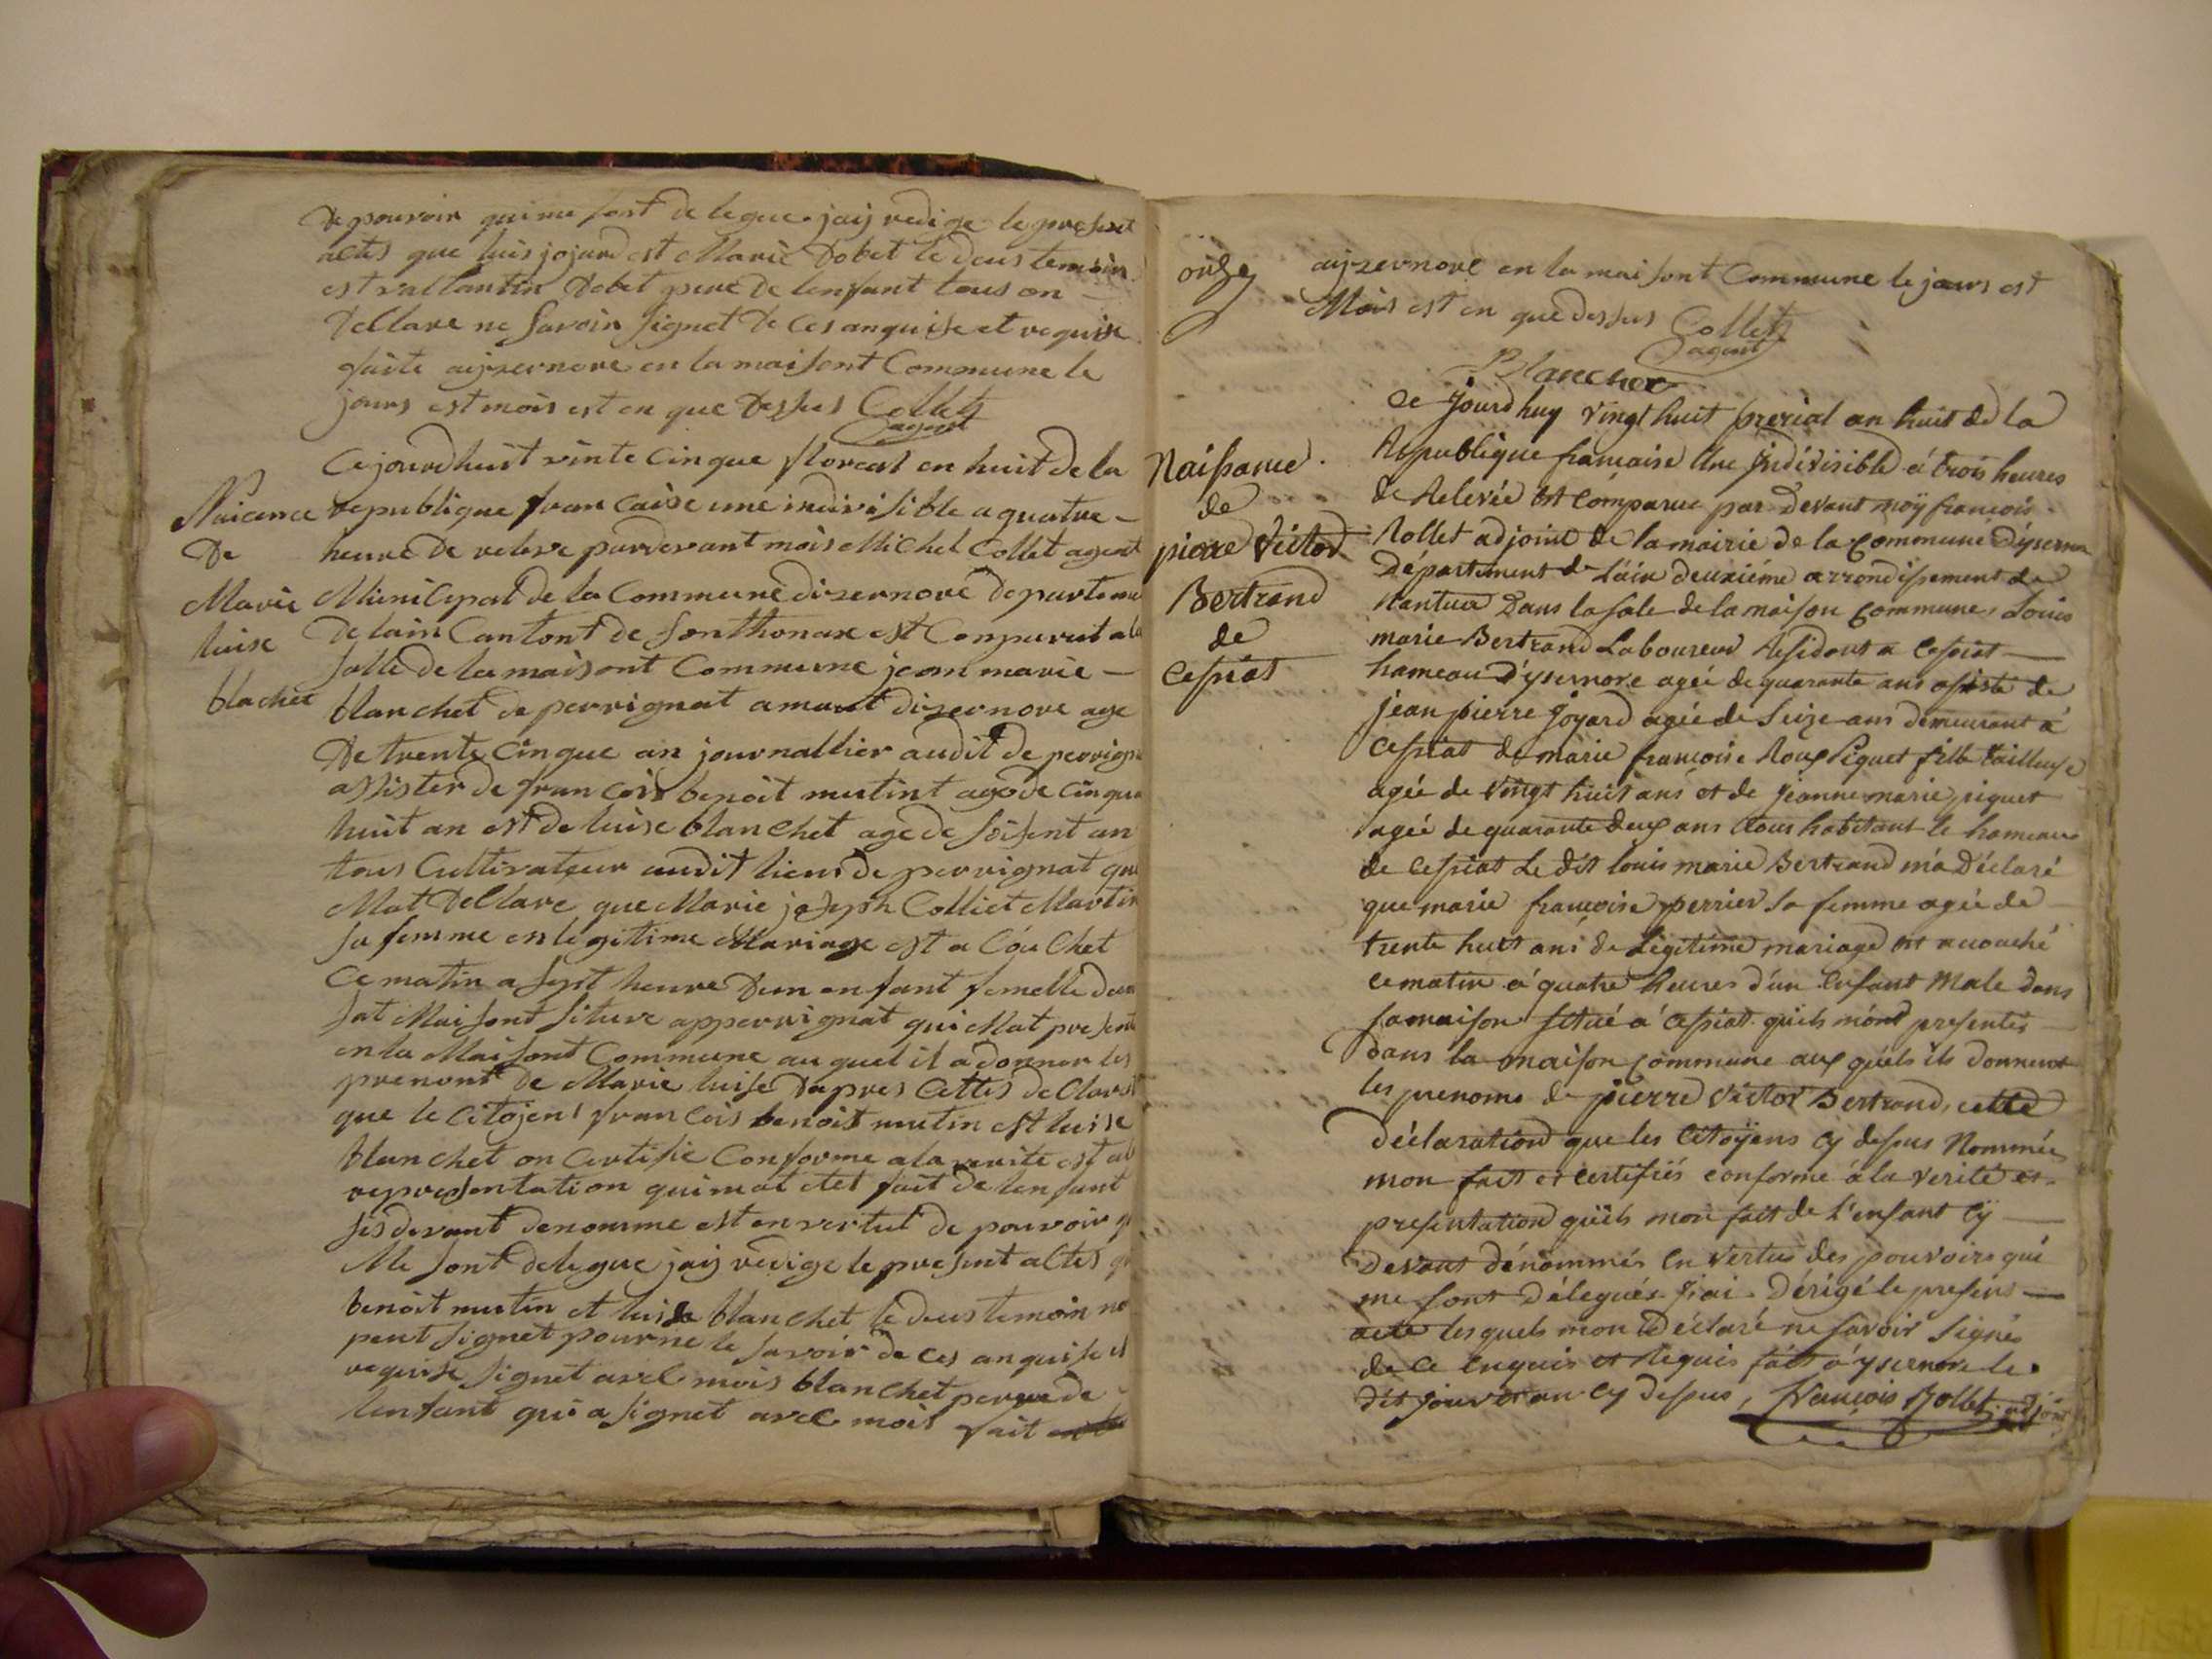 de pouvoir qui me sont de legue jaij redige le present
actes que luis jojard est Marie Dobet le deus temoin
est vallantin Dobet pere de lenfant tous on
dellare ne savoir signet de ces anquise et requise
faite aijzernore en la maisont Commune le
jours est mois est en que dessus Collet
agent
Ce jourdhuit vinte cinque floreal en huit de la
Naicence
de
Marie
luise
blachet
republique fran caise une indivisible a quatre –
heure de releve pardevant mois Michel Collet agent
Municipal de la Commune dizernore departeme
de lain Cantont de Sonthonax est Comparut a la
salle de la maisont Commune jean marie –
blanchet de perrignat amant dizernore age
de trente cinque an journallier audit de perrign
assister de fran cois benoit mutint age de cinqua
huit an est de luise blanchet age de soisent an
tous Cultivateur audit lieus de perrignat qui
Mat dellare que Marie joseph Colliet Martin
sa femme en legitime Mariage est a Cou Chet
Ce matin a sept heure dun enfant femelle dan
sat Maisont situer apperrignat qui Mat present
en la Maisont Commune au quel il a donner les
prenont de Marie luise dapres Cettes de Clarat
que le Citojent fran Cois benoit mutin est luise
blanchet on Certifie Conforme a la verite est al
representation qui mat etet fait de lenfant
sis devant denomme est en vertut de pouvoir q
Me sont delegue jaij redige le present actes q
benoit mutin et luise blanchet le deus temoin ne
peut signet pour ne le savoir de ces anquise et
requise signet avec mois blanchet per de
lenfant qui a signet avec mois fait
onze
aijzernore en la maisont Commune le jours est
Mois est en que dessus Collet
agent
Blanchet
Naissance
de
pierre Victor
Bertrand
de
Cessiat
Ce jourdhuy vingt huit prerial an huit de la
Republique francaise Une Indivisible à trois heures
de Relevée est comparue par devant moÿ francois
Rollet adjoint de la mairie de la Commune d'ysernor
Département de l'ain deuxiéme arrondissement de
Nantua Dans la sale de la maison commune, Louis
marie Bertrand Laboureur Residant a Cessiat —
hameau d'ysernore agée de quarante ans assisté de
jean pierre Joyard agée de Seize ans demeurant à
Cessiat de marie francoise Roux Piquet fille tailleuse
agée de vingt huit ans et de jeanne marie piquet
agée de quarante deux ans tous habitant le hameau
de Cessiat Le dit louis marie Bertrand m'a Déclaré
que marie francoise perrier sa femme agée de
trente huit ans de Légitime mariage est accouché
ce matin à quatre heures d'un Enfant Male dans
sa maison situé à Cessiat qu'ils m'ont presentés
dans la maison commune aux quels ils donnent
les prenoms de pierre Victor Bertrand, cette
déclaration que les Citoÿens Cy dessus Nommés
mon fait et certifiés conforme à la verité et
presentation qu'ils mon fait de L'enfant Cÿ —
Devant dénommés En vertus des pouvoirs qui
me sont Délegués j'ai Dérigé le presens —
acte lesquels mon Déclaré ne savoir Signés
de ce Enquis et Requis fait à ysernore le
dit jour et an cy dessus, François Rollet adjoint